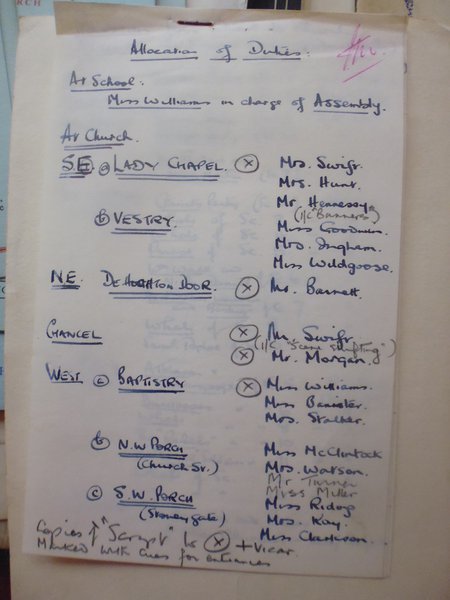 Allocation of Duties.
At School:
Miss Williams in charge of Assembly.
At Church.
S.E. a LADY CHAPEL. X Mrs. Swift.
Mrs. Hunt.
Mr. Hennessy
(i/c Banners)
b VESTRY. Miss Goodwin
Mrs. Ingham.
Miss Wildgoose.
N.E. DE HOGHTON DOOR. X Mr. Barnett.
CHANCEL X Mr. Swift.
(i/c "Scene Shifting")
X Mr. Morgan.
WEST a BAPTISTRY X Miss Williams.
Miss Banister.
Mrs. Stalker.
b N.W PORCH Miss McClintock
(Church St.) Mrs. Watson.
Mr Turner
Miss Miller
c S.W. PORCH Miss Riding
(Stoneygate) Mrs. Kay.
Miss Clarkson.
Copies of "Script" to X + Vicar.
Marked with cues for entrances